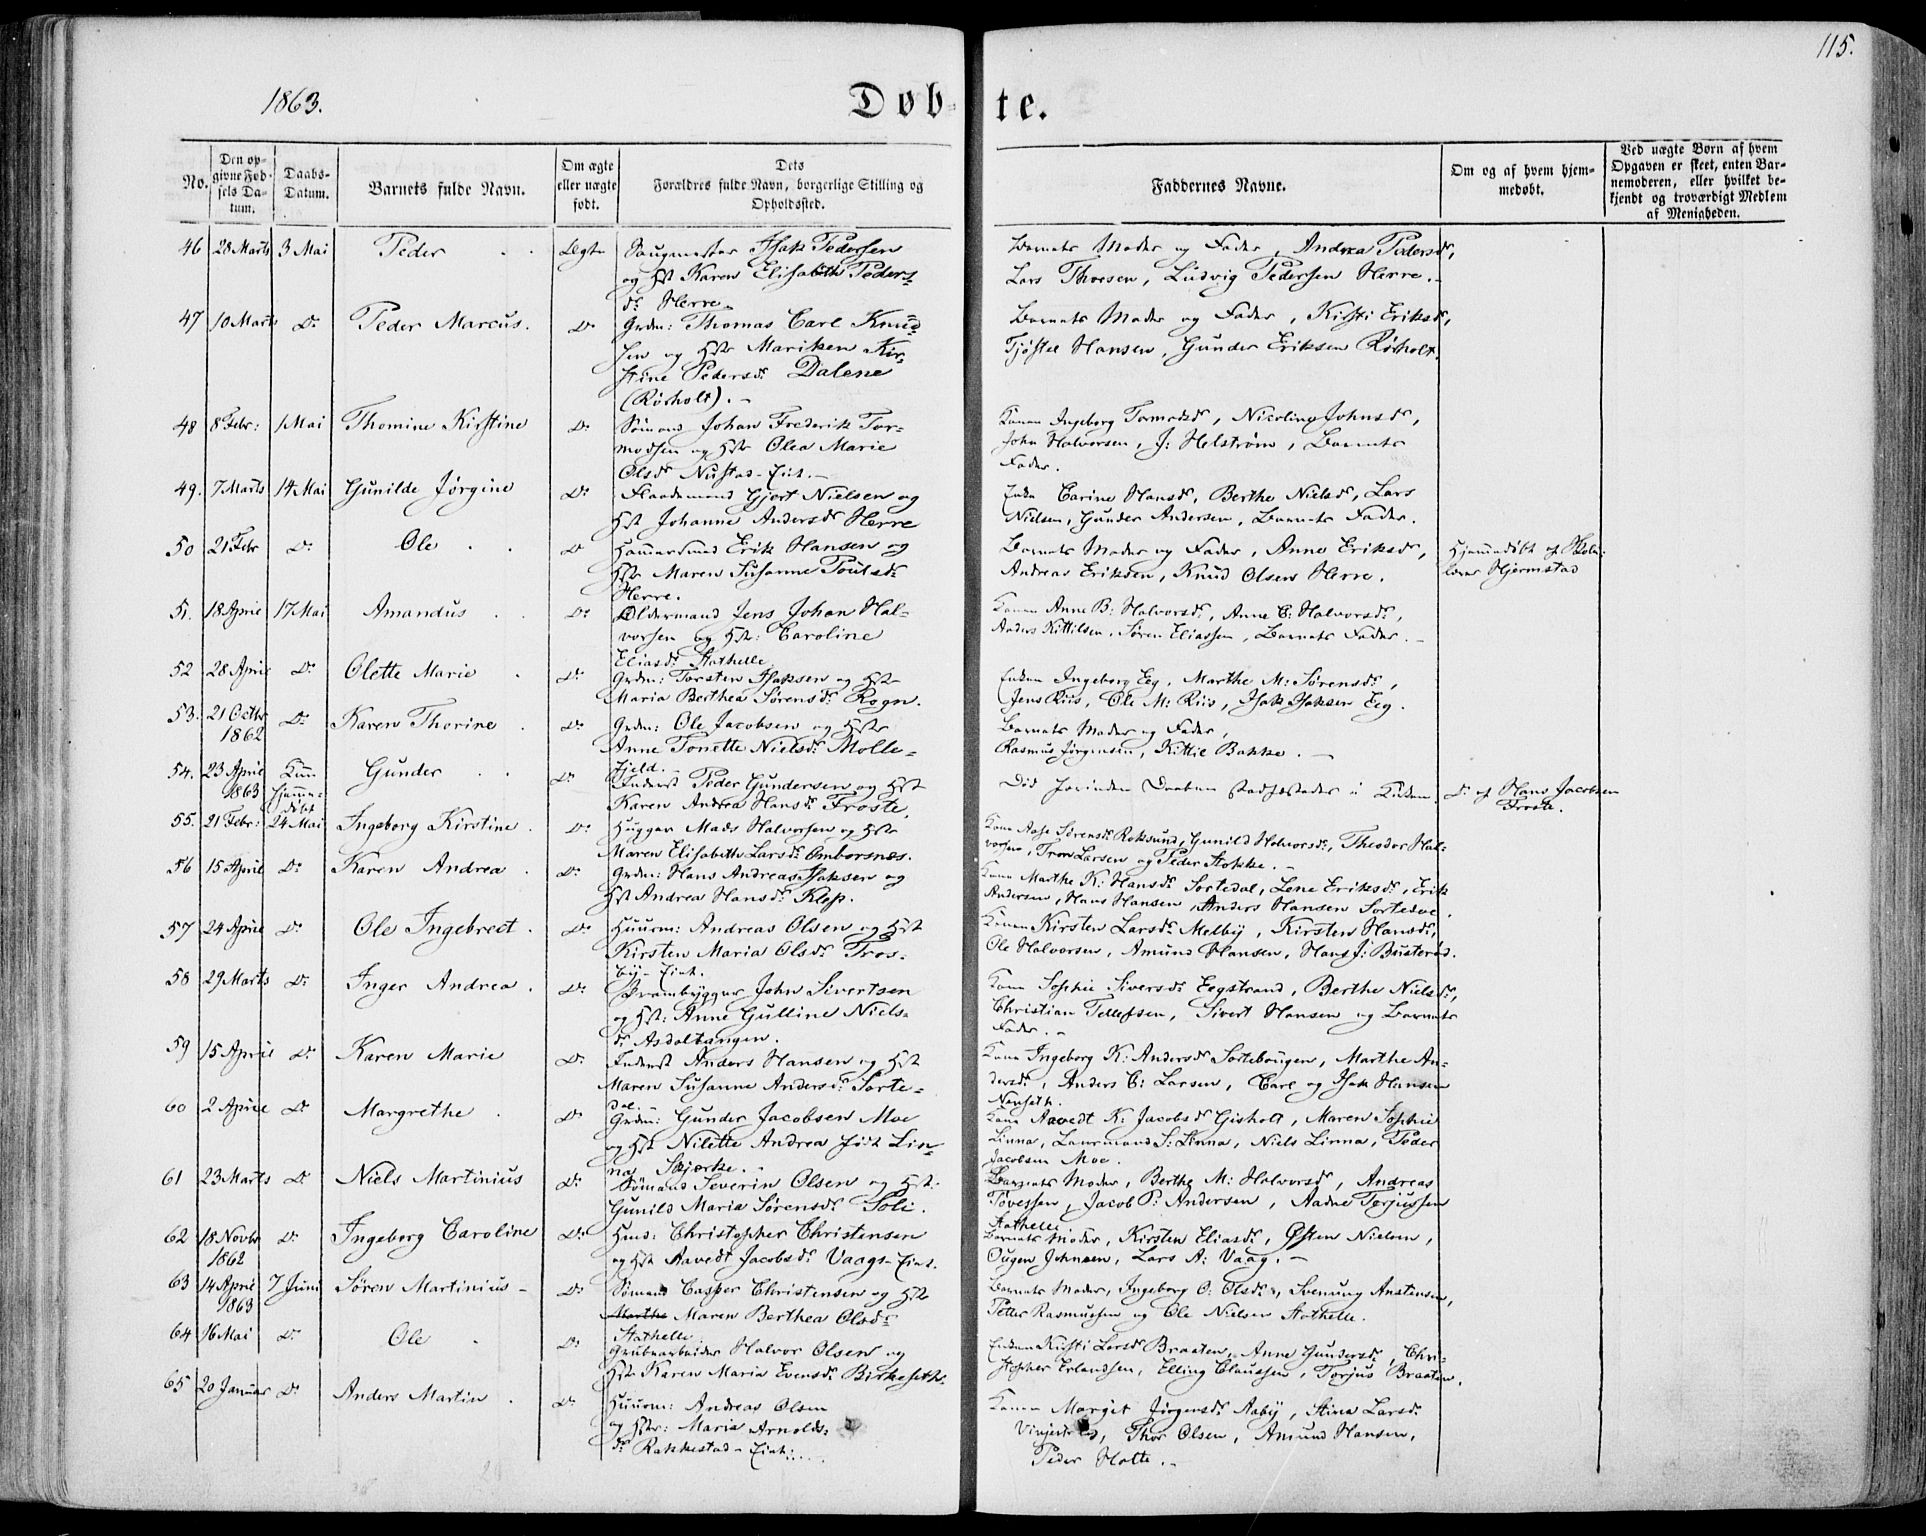 115.
1863.
Døb-te.
No.
Den op-
givne Fød-
sels Da-
tum.
Daabs-
Datum.
Barnets fulde Navn.
Om ægte
eller uægte
født.
Dets
Forældres fulde Navn, borgerlige Stilling og
Opholdssted.
Faddernes Navne.
Om og af hvem hjem-
medøbt.
Ved uægte Børn af hvem
Opgaven er skeet, enten Bar-
nemoderen, eller hvilket be-
kjendt og troværdigt Medlem
af Menigheden.
46 28 Marts 3 Mai Peder Ægte Saugmester Isak Pedersen
og Hst Karen Elisabeth Peders-
dr Herre.
Barnets Moder og Fader, Andrea Pedersdr,
Lars Thoesen, Ludvig Pedersen Herre.
47 10 Marts Do Peder Marcus. Do Grdm: Thomas Carl Knud-
sen og Hstr Mariken Kir-
stine Pedersdr Dalene
(Rørholt).
Barnets Moder og Fader, Kirsti Eriksdr,
Tjøstel Hansen, Gunder Eriksen Rørholt.
48 8 Febr: 1 Mai Thomine Kirstine Do Sømand Johan Frederik Tor-
modsen og Hstr Olea Marie
Olsdr Nustad-Eiet.
Konen Ingeborg Tormodsdr, Nicoline Johnsdr,
John Halvorsen, J: Helstrøm, Barnets
Fader.
49. 7 Marts 14 Mai Gunilde Jørgine Do Flaademand Gjert Nielsen og
Hst Johanne Andersdr Herre
Enken Carine Hansdr, Berthe Nielsdr, Lars
Nielsen, Gunder Andersen, Barnets Fader.
50 21 Febr Do Ole Do Hammersmed Erik Hansen og
Hstr Maren Susanne Poulsdr
Herre.
Barnets Moder og Fader, Anne Eriksdr,
Andreas Eriksen, Knud Olsen Herre.
Hjemmedøbt af Skole-
lærer Hjermstad
51. 18 April 17 Mai Amandus Do Oldermand Jens Johan Hal-
vorsen og Hst: Caroline
Eliasdr Stathelle
Konen Anne B: Halvorsdr, Anne C: Halvorsdr,
Anders Kittilsen, Søren Eliassen, Barnets Fader.
52 28 April Do Olette Marie Do Grdm: Torsten Isaksen og Hst
Maria Berthea Sørensdr Rogn.
Enken Ingeborg Eeg, Marthe M: Sørensdr,
Jens Riis, Ole M: Riis, Isak Isaksen Eeg.
53. 21 Octbr
1862 Do Karen Thorine Do Grdm: Ole Jacobsen og Hstr
Anne Tonette Nielsdr Molle-
fjeld.
Barnets Moder og Fader,
Rasmus Jørgensen, Kittil Bakke.
54. 23 April
1863 Kun
hjemme-
døbt Gunder Do Inderst Peder Gundersen og Hst
Karen Andrea Hansdr Froste,
Død forinden Daaben stadfæstedes i Kirken. Do af Hans Jacobsen
Froste.
55. 21 Febr: 24 Mai Ingeborg Kirstine Do Hugger Mads Halvorsen og Hstr
Maren Elisabeth Larsdr Omborsnes.
Kone Aase Sørensdr Roksund, Gunild Halvorsdr, Theodor Hal-
vorsen, Tron Larsen og Peder Stokke.
56 15 April Do Karen Andrea Do Grdm: Hans Andreas Isaksen og
Hst Andrea Hansdr Klep.
Kone Marthe K: Hansdr Sortedal, Lene Eriksdr, Erik
Andersen, Hans Hansen, Anders Hansen Sortedal.
57 24 April Do Ole Ingebrect Do Huusm: Andreas Olsen og Hst
Kirsten Maria Olsdr Tros-
by-Eiet.
Konen Kirsten Larsdr Melby, Kirsten Hansdr,
Ole Halvorsen, Amund Hansen, Hans J: Busterød.
58 29 Marts Do Inger Andrea Do Prambygger John Sivertsen
og Hst: Anne Gulline Niels-
dr Asdaltangen.
Kone Sophie Siversdr Eegstrand, Berthe Nielsdr,
Christian Tellefsen, Sivert Hansen og Barnets
Fader.
59 15 April Do Karen Marie Do Inderst Anders Hansen og Hst
Maren Susanne Andersdr Sorte-
dal.
Kone Ingeborg K: Andersdr Sortebougen, Marthe An-
dersdr, Anders C: Larsen, Carl og Isak Hansen
Nenseth.
60 2 April Do Margrethe Do Grdm: Gunder Jacobsen Moe
og Hst Nilette Andrea født Lin-
na Skjerke.
Kone Aavedt K: Jacobsdr Gisholt, Maren Sophie
Linna, Lensmand S: Linna, Niels Linna, Peder
Jacobsen Moe.
61 23 Marts Do Niels Martinius Do Sømand Severin Olsen og Hst.
Gunild Maria Sørensdr Soli.
Barnets Moder, Berthe M: Halvorsdr, Andreas
Tovessen, Jacob P: Andersen, Aadne Terjussen
Stathelle.
62 18 Novbr
1862 Do Ingeborg Caroline Do Huus: Christopher Christensen
og Hst Aavedt Jacobsdr Vaags-Eiet.
Barnets Moder, Kirsten Eliasdr, Østen Nielsen,
Ougen Johnsen, Lars A: Vaag.
63 14 April
1863 7 Juni Søren Martinius Do Sømand Casper Christensen og Hstr
Marthe Maren Berthea Olsdr
Stathelle.
Barnets Moder, Ingeborg O: Olsdr, Svenung Anstensen,
Petter Rasmussen og Ole Nielsen Stathelle.
64 16 Mai Do Ole Do Grubearbeider Halvor Olsen og
Hst Karen Maria Evensdr Birkeseth.
Enken Kirsti Larsdr Braaten, Anne Gundersdr, Chri-
stopher Erlandsen, Elling Claussen, Torjus Braaten.
65 20 Januar Do Anders Martin Do Huusm: Andreas Olsen
og Hstr: Maria Arnolds-
dr Rakkestad-Eiet:
Konen Margit Jørgensdr Aaby, Stina Larsdr
Thor Olsen, Amund Hansen,
Peder Holte.